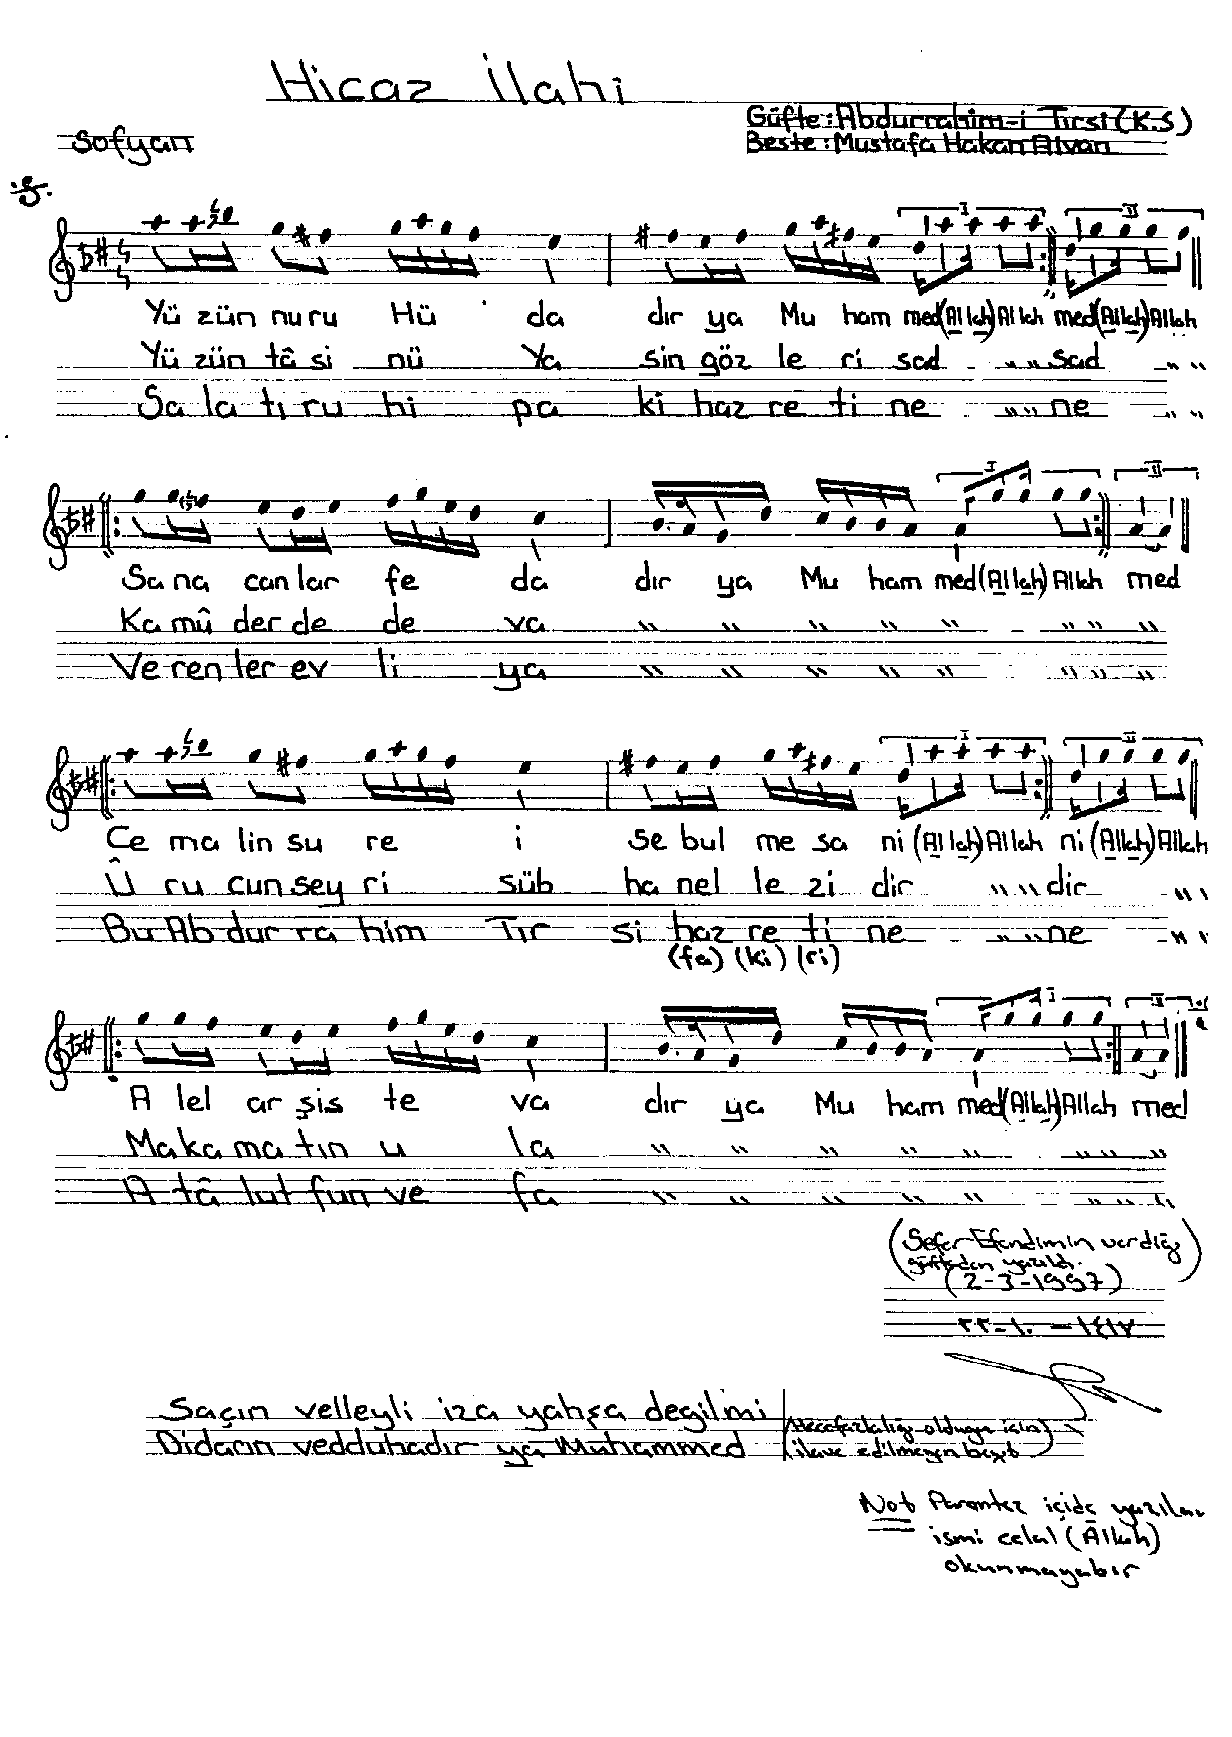 Hicaz İlahi
Güfte: Abdurrahim-i Tırsi (K.S)
Sofyan
Beste: Mustafa Hakan Alvan
I II
Yü zün nu ru Hü da dır ya Mu ham med (Al lah) Allah med (Allah) Allah
Yü zün tâ si nü Ya sin göz le ri sad " " sad " "
Sa la tı ru hi pa ki haz re ti ne " " ne " "
I II
Sa na can lar fe da dır ya Mu ham med (Allah) Allah med
Ka mû der de de va " " " " " " " "
Ve ren ler ev li ya " " " " " " " "
I II
Ce ma lin su re i se bul me sa ni (Allah) Allah ni (Allah) Allah
Û ru cun sey ri süb ha nel le zi dir " " dir " "
Bu Ab dur ra him Tır si haz re ti ne " " ne " "
(fa) (ki) (ri)
I II
A lel ar şis te va dır ya Mu ham med (Allah) Allah med
Ma ka ma tın u la " " " " " " " "
A tâ lut fun ve fa " " " " " " " "
(Sefer Efendimin verdiği
güfteden yazıldı.
(2-3-1997)
٢٢-١٠-١٤١٧
Saçın velleyli iza yahşa değilmi
(Hece fazlalığı olduğu için)
Didarın vedduhadır ya Muhammed
ilave edilmeyen beyit
Not Parantez içide yazılan
ismi celal (Allah)
okunmayabır